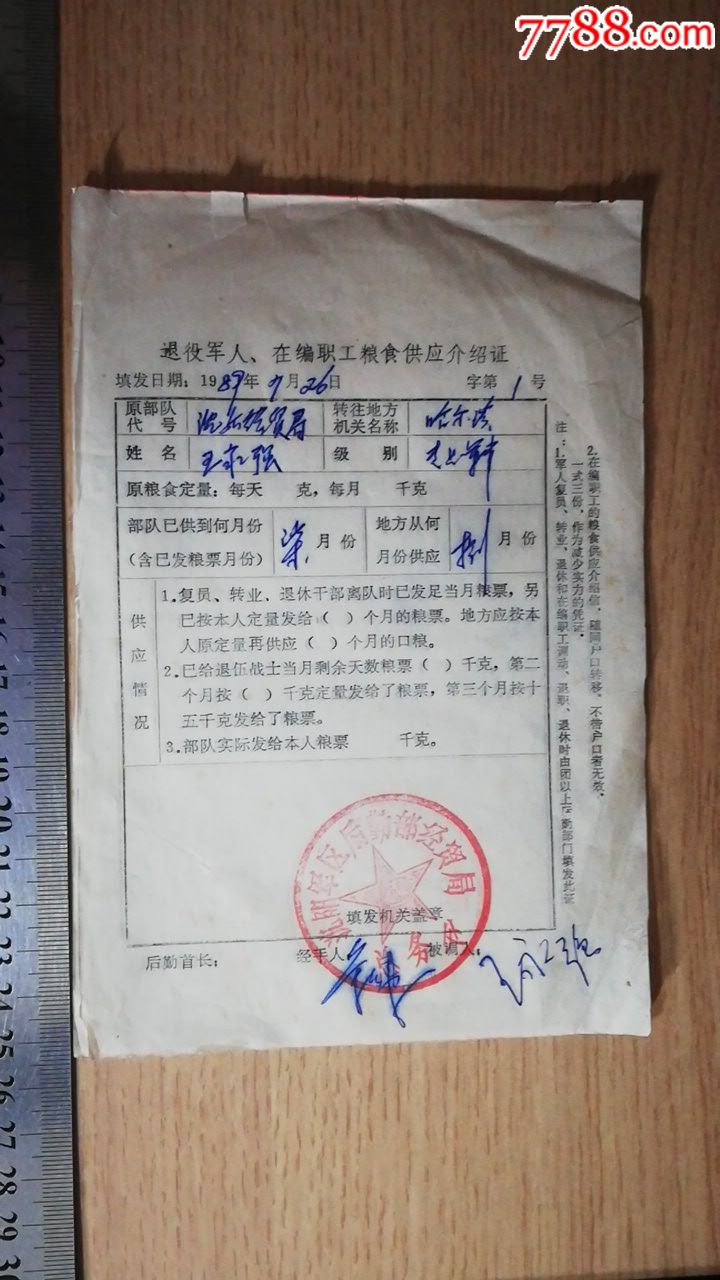 7788.com
退役军人、在编职工粮食供应介绍证
填发日期：1989年7月26日 字第1号
原部队代号 经贸局 转往地方机关名称 哈尔滨
姓名 王永强 级别
原粮食定量：每天 克，每月 千克
部队已供到何月份（含已发粮票月份） 柒月份 地方从何月份供应 捌月份
供应情况
1.复员、转业、退休干部离队时已发足当月粮票，另
已按本人定量发给（ ）个月的粮票。地方应按本
人原定量再供应（ ）个月的口粮。
2.已给退伍战士当月剩余天数粮票（ ）千克，第二
个月按（ ）千克定量发给了粮票，第三个月按十
五千克发给了粮票。
3.部队实际发给本人粮票 千克。
军区后勤部经贸局
填发机关盖章
后勤首长： 经手人： 被调人： 王永强
注：1.军人复员、转业、退休和在编职工调动、退职、退休时由团以上后勤部门填发此证
一式三份，作为减少实力的凭证。
2.在编职工的粮食供应介绍信，随同户口转移，不带户口者无效。
16
17
18
19
20
21
22
23
24
25
26
27
28
29
30